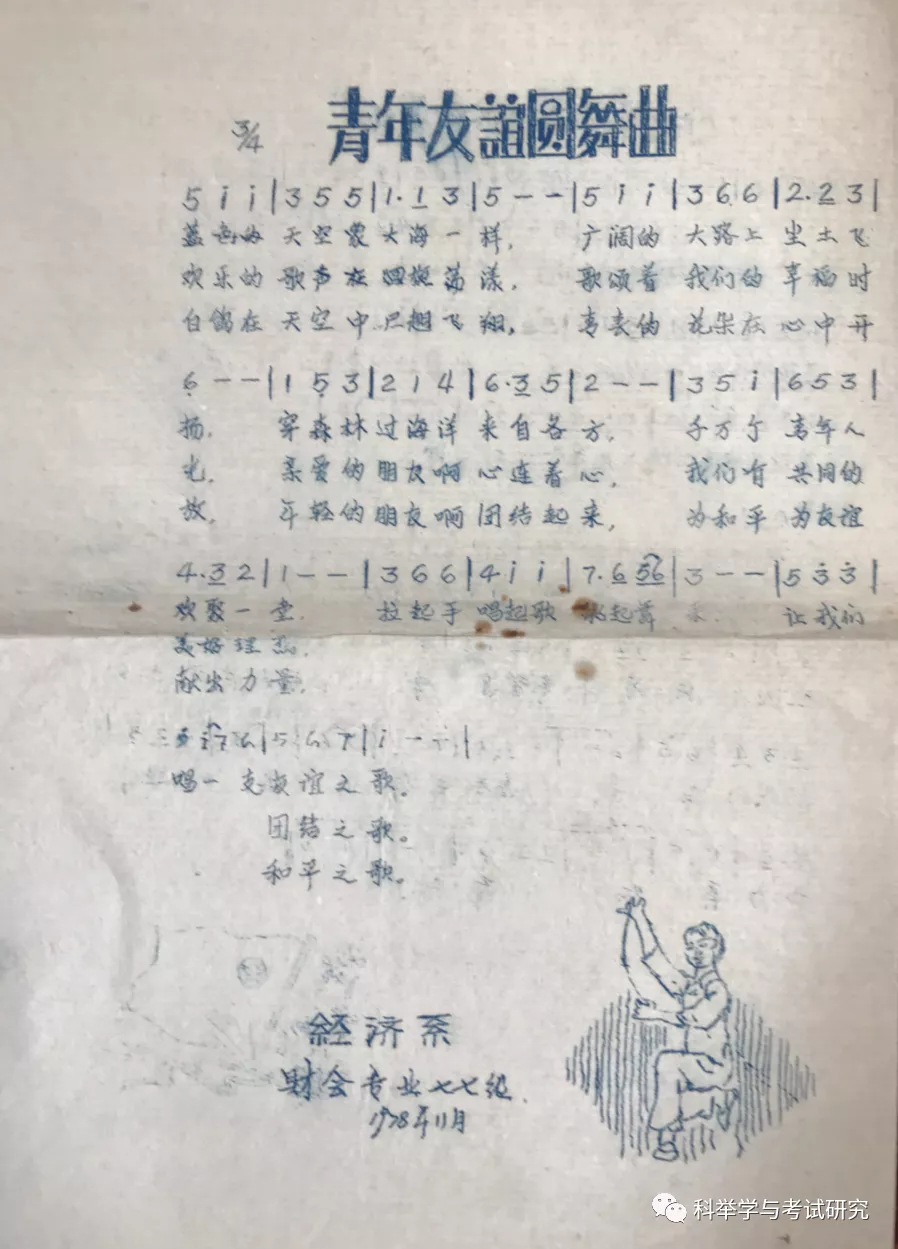 青年友誼圆舞曲
3/4
5 i i | 3 5 5 | 1· 1 3 | 5 - - | 5 i i | 3 6 6 | 2· 2 3 |
蓝色的 天空象大海一样， 广阔的 大路上 尘土飞
欢乐的 歌声在四处荡漾， 歌颂着 我们的 幸福时
白鸽在 天空中展翅飞翔， 青春的 花朵在 心中开
6 - - | 1 5 3 | 2 1 4 | 6· 3 5 | 2 - - | 3 5 i | 6 5 3 |
扬， 穿森林过海洋 来自各方， 千万个 青年人
光， 亲爱的朋友啊 心连着心， 我们有 共同的
放， 年轻的朋友啊 团结起来， 为和平 为友谊
4· 3 2 | 1 - - | 3 6 6 | 4 i i | 7· 6 56 | 3 - - | 5 3 3 |
欢聚一堂， 拉起手 唱起歌 起舞 让我们
美好理想，
献出力量，
6 | 5 6 7 | i - - |
唱一 支友谊之歌。
团结之歌。
和平之歌。
経济系
财会专业七七级
1978年11月
科举学与考试研究